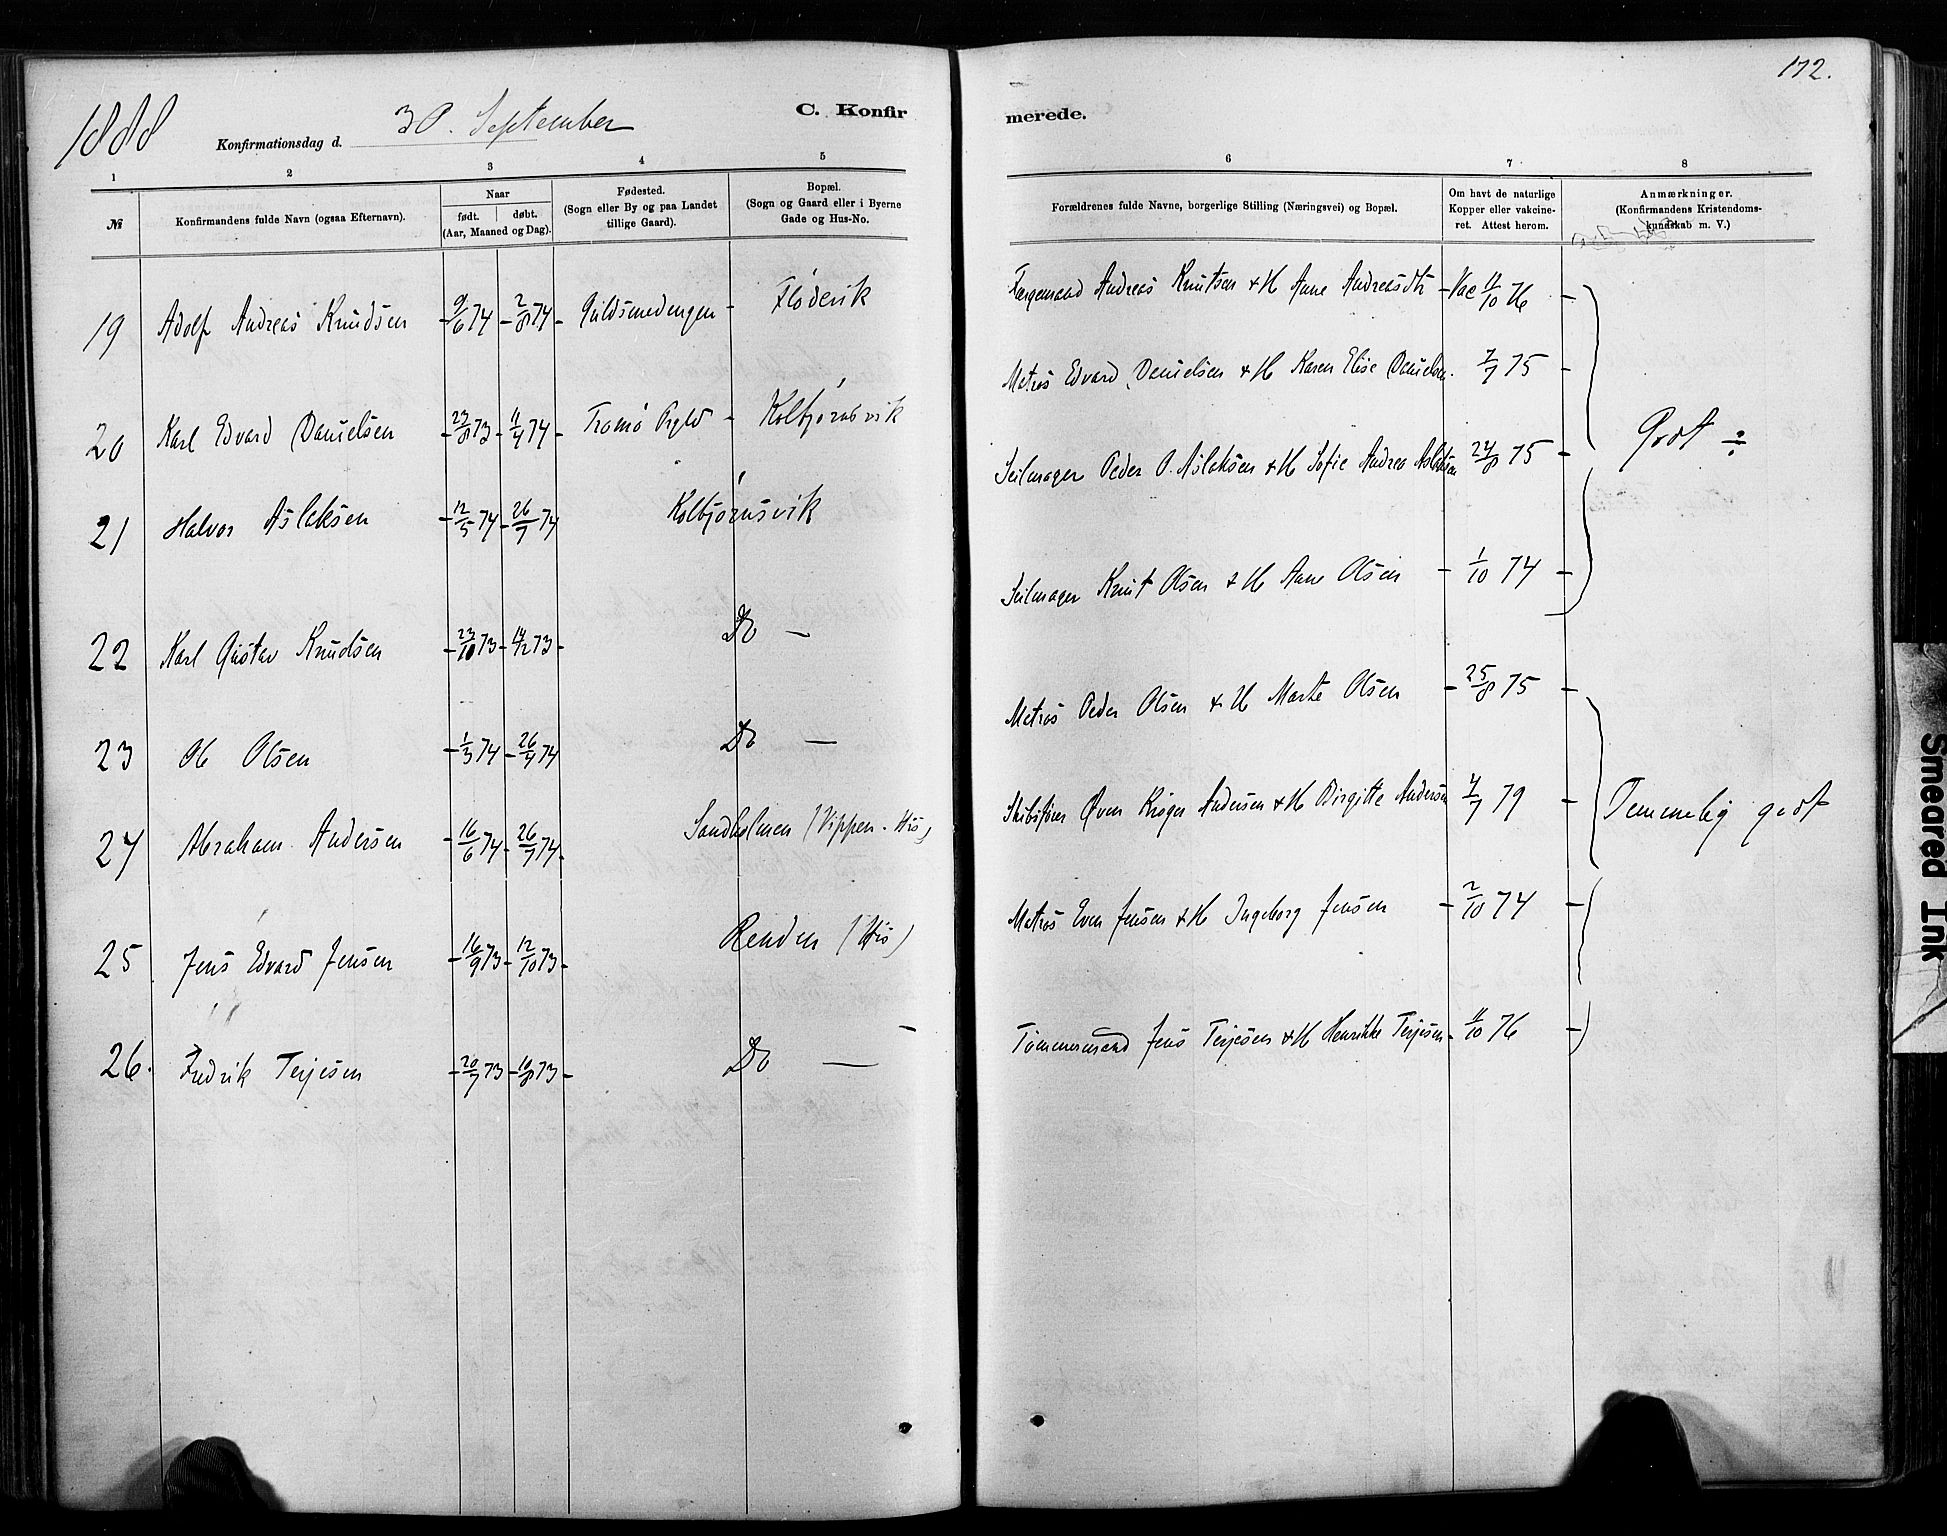 172.
1888
Konfirmationsdag d. 30. September
C. Konfir
merede.
1 2 3 4 5 6 7 8
№
Konfirmandens fulde Navn (ogsaa Efternavn).
Naar
født. døbt.
(Aar, Maaned og Dag).
Fødested.
(Sogn eller By og paa Landet
tillige Gaard).
Bopæl.
(Sogn og Gaard eller i Byerne
Gade og Hus-No.
Forældrenes fulde Navne, borgerlige Stilling (Næringsvei) og Bopæl.
Om havt de naturlige
Kopper eller vakcine-
ret. Attest herom.
Anmærkninger.
(Konfirmandens Kristendoms-
kundskab m. V.)
19 Adolf Andreas Knudsen - 9/6 74 - 2/8 74 - Guldsmedengen - Fløderik
Færgemand Andreas Knutsen & H Anne Andreasdtr - Vac 11/10 76 -
20 Karl Edvard Danielsen - 23/8 73 - 11/4 74 - Tromø - Kolbjørnsvik
Matros Edvard Danielsen & H Karen Elise Danielsen. 7/7 75 -
21 Halvor Aslaksen - 12/5 74 - 26/7 74 Kolbjørnsvik
Seilmager Peder O. Aslaksen & H Sofie Andrea Aslaksen 24/8 75 -
Godt ÷
22 Karl Gustav Knudsen - 23/10 73 - 14/12 73 - Do -
Seilmager Knut Olsen & H Anne Olsen - 1/10 74 -
23 Ole Olsen - 1/3 74 - 26/4 74 Do -
Matros Peder Olsen & H Marte Olsen - 25/8 75 -
24 Abraham Andersen - 16/6 74 - 26/7 74 - Sandholmen (Vippen. His)
Skibsfører Øven Krøger Andersen & H Birgitte Andersen 4/7 79 -
Temmelig godt
25 Jens Edvard Jensen - 16/9 73 - 12/10 73 - Renden (His)
Matros Even Jensen & H Ingeborg Jensen - 2/10 74 -
26. Fredrik Terjesen - 20/7 73 - 10/8 73 - Do -
Tømmermand Jens Terjesen & H Henrikke Terjesen - 11/10 76 -
Smeared Ink